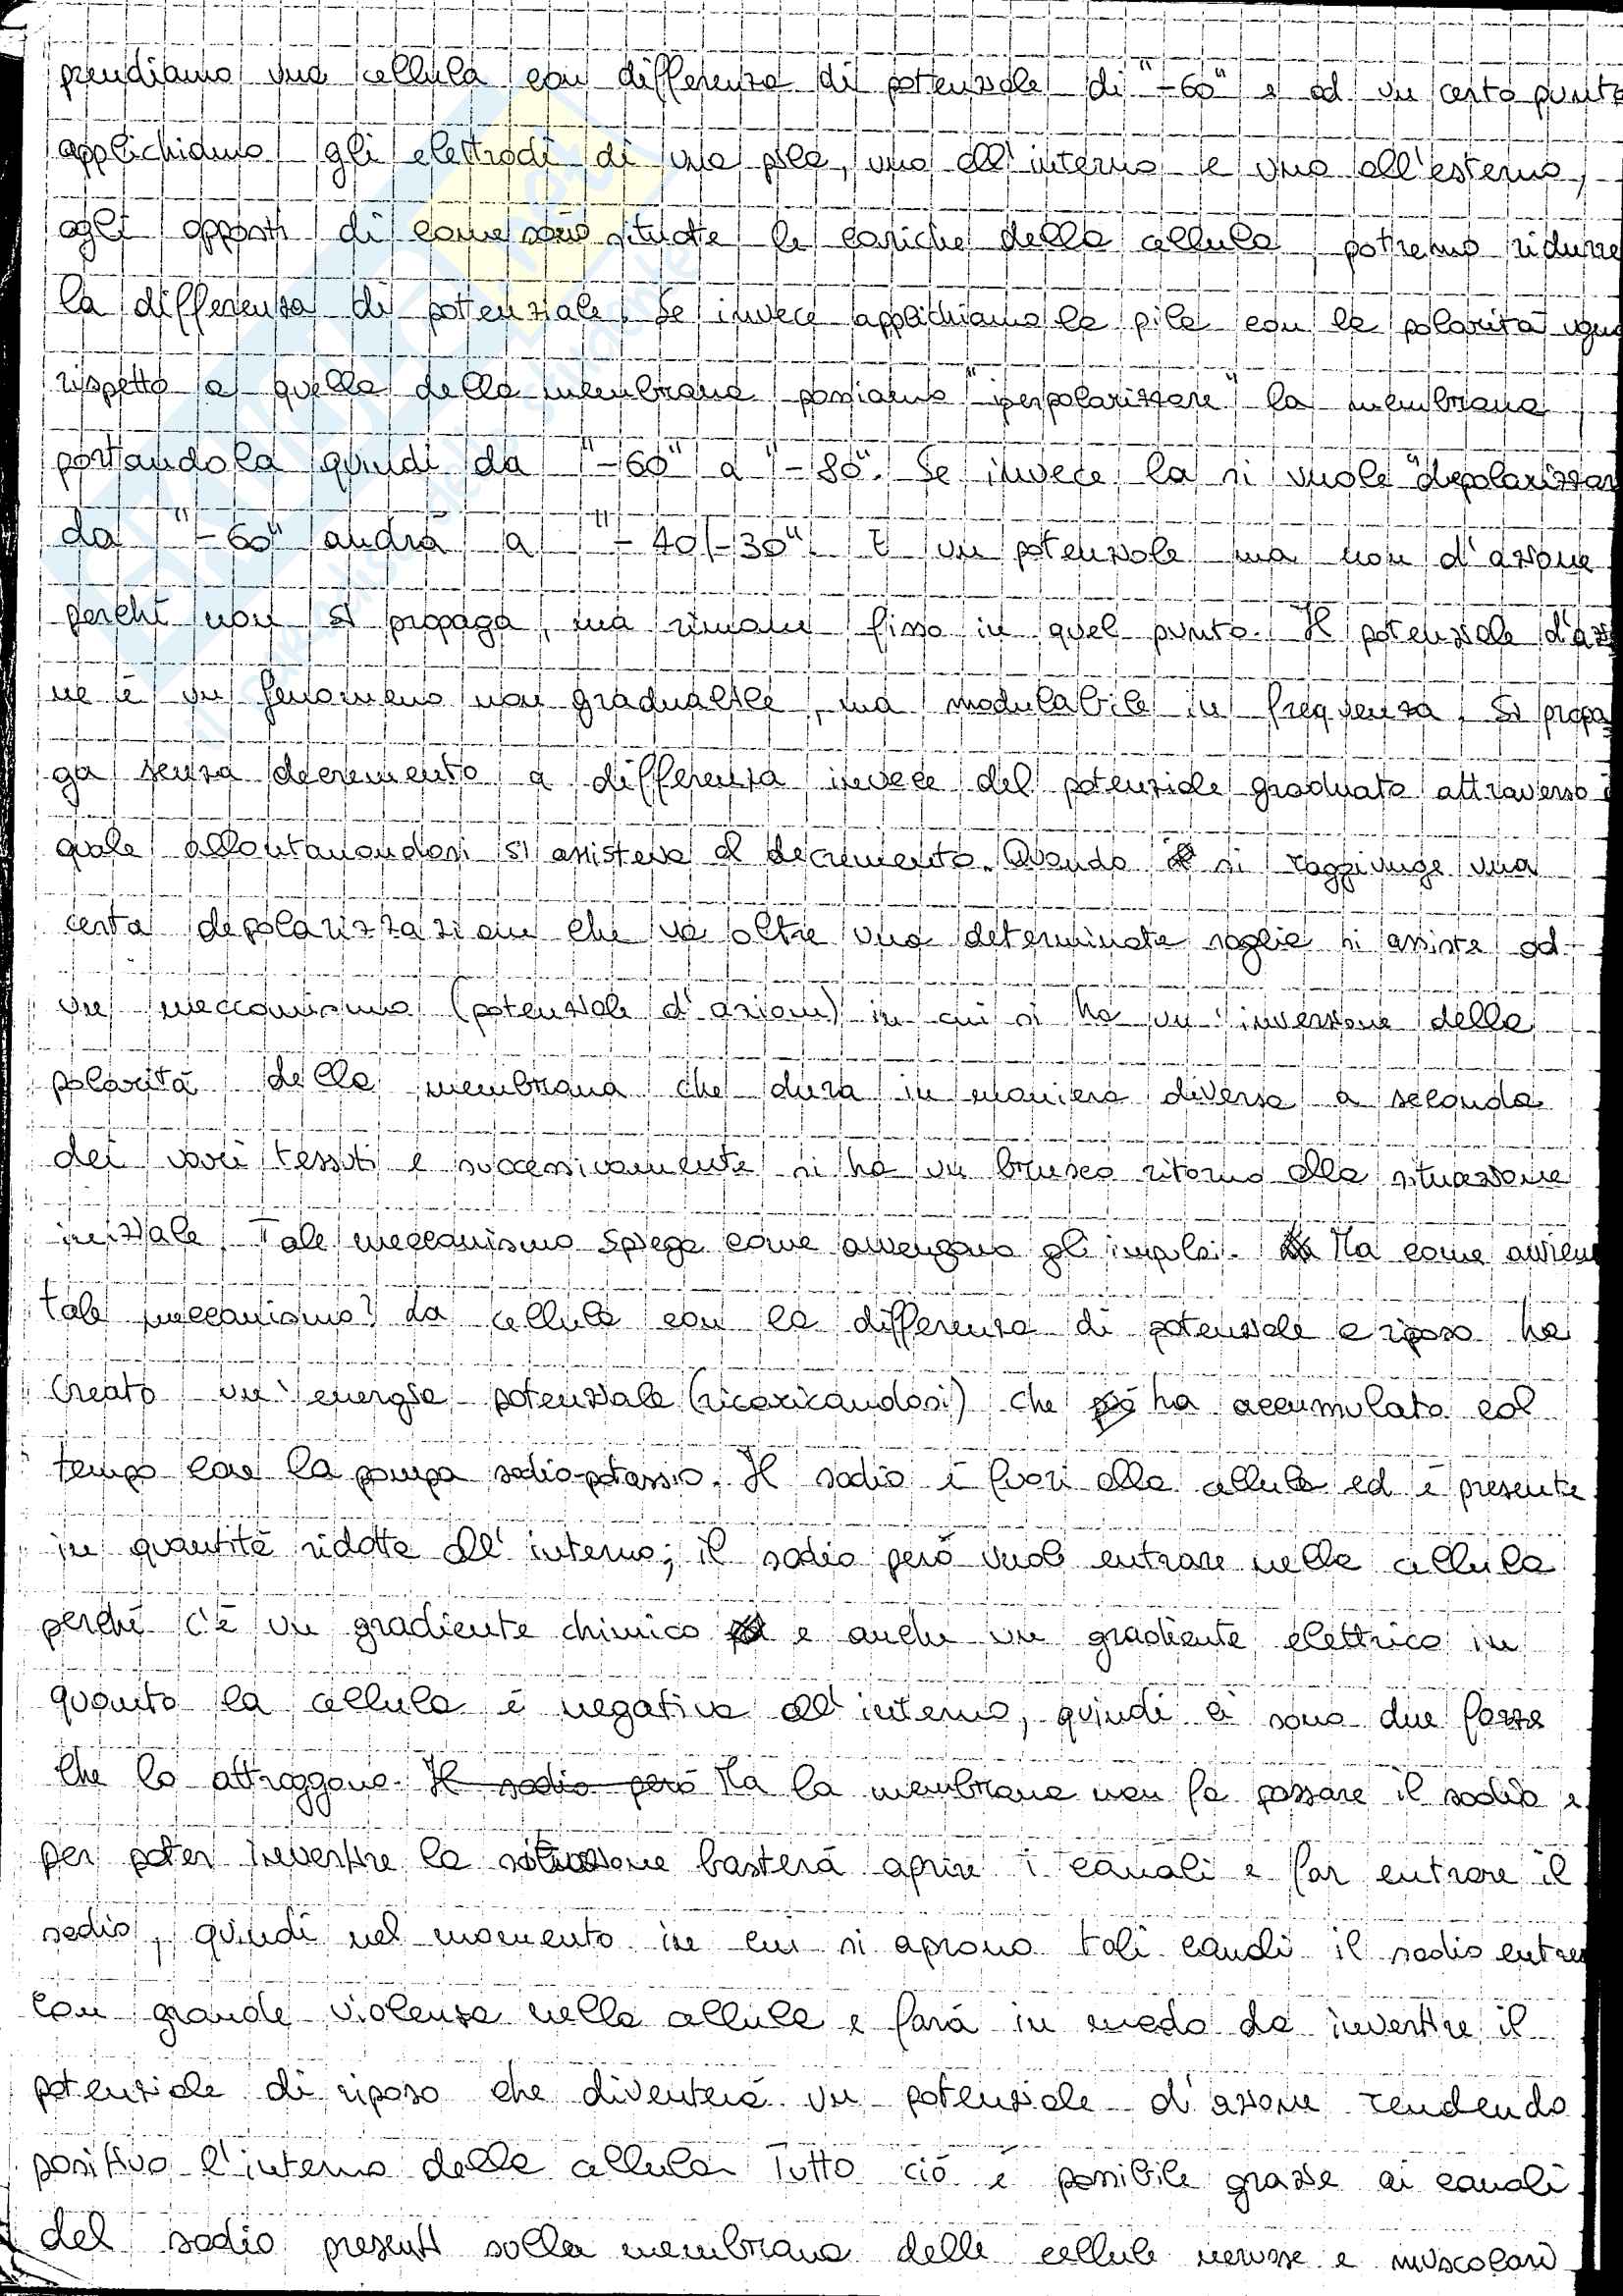 prendiamo una cellula con differenza di potenziale di "-60" e ad un certo punto
applichiamo gli elettrodi di una pila, uno all'interno e uno all'esterno,
agli opposti di come sono situate le cariche della cellula, potremo ridurre
la differenza di potenziale. Se invece applichiamo la pila con le polarità
rispetto a quella della membrana possiamo "iperpolarizzare" la membrana,
portandola quindi da "-60" a "-80". Se invece la si vuole "depolarizzar
da "-60" andrà a "-40/-30". È un potenziale ma non d'azione
perché non si propaga, ma rimane fisso in quel punto. Il potenziale d'azio
ne è un fenomeno non graduabile, ma modulabile in frequenza. Si propa
ga senza decremento a differenza invece del potenziale graduato attraverso i
quale allontanandosi si assisteva al decremento. Quando si raggiunge una
certa depolarizzazione che va oltre una determinata soglia si assiste ad
un meccanismo (potenziale d'azione) in cui si ha un'inversione della
polarità della membrana che dura in maniera diversa a seconda
dei vari tessuti e successivamente si ha un brusco ritorno alla situazione
iniziale. Tale meccanismo spiega come avvengono gli impulsi. Ma come avviene
tale meccanismo? La cellula con la differenza di potenziale a riposo ha
creato un'energia potenziale (ricaricandosi) che ha accumulato col
tempo con la pompa sodio-potassio. Il sodio è fuori alla cellula ed è presente
in quantità ridotta all'interno; il sodio però vuole entrare nella cellula
perché c'è un gradiente chimico e anche un gradiente elettrico in
quanto la cellula è negativa all'interno, quindi ci sono due forze
che lo attraggono. Il sodio però Ma la membrana non fa passare il sodio e
per poter invertire la situazione basterà aprire i canali e far entrare il
sodio, quindi nel momento in cui si aprono tali canali il sodio entra
con grande violenza nella cellula e farà in modo da invertire il
potenziale di riposo che diventerà un potenziale d'azione rendendo
positivo l'interno della cellula. Tutto ciò è possibile grazie ai canali
del sodio presenti sulla membrana delle cellule nervose e muscolari